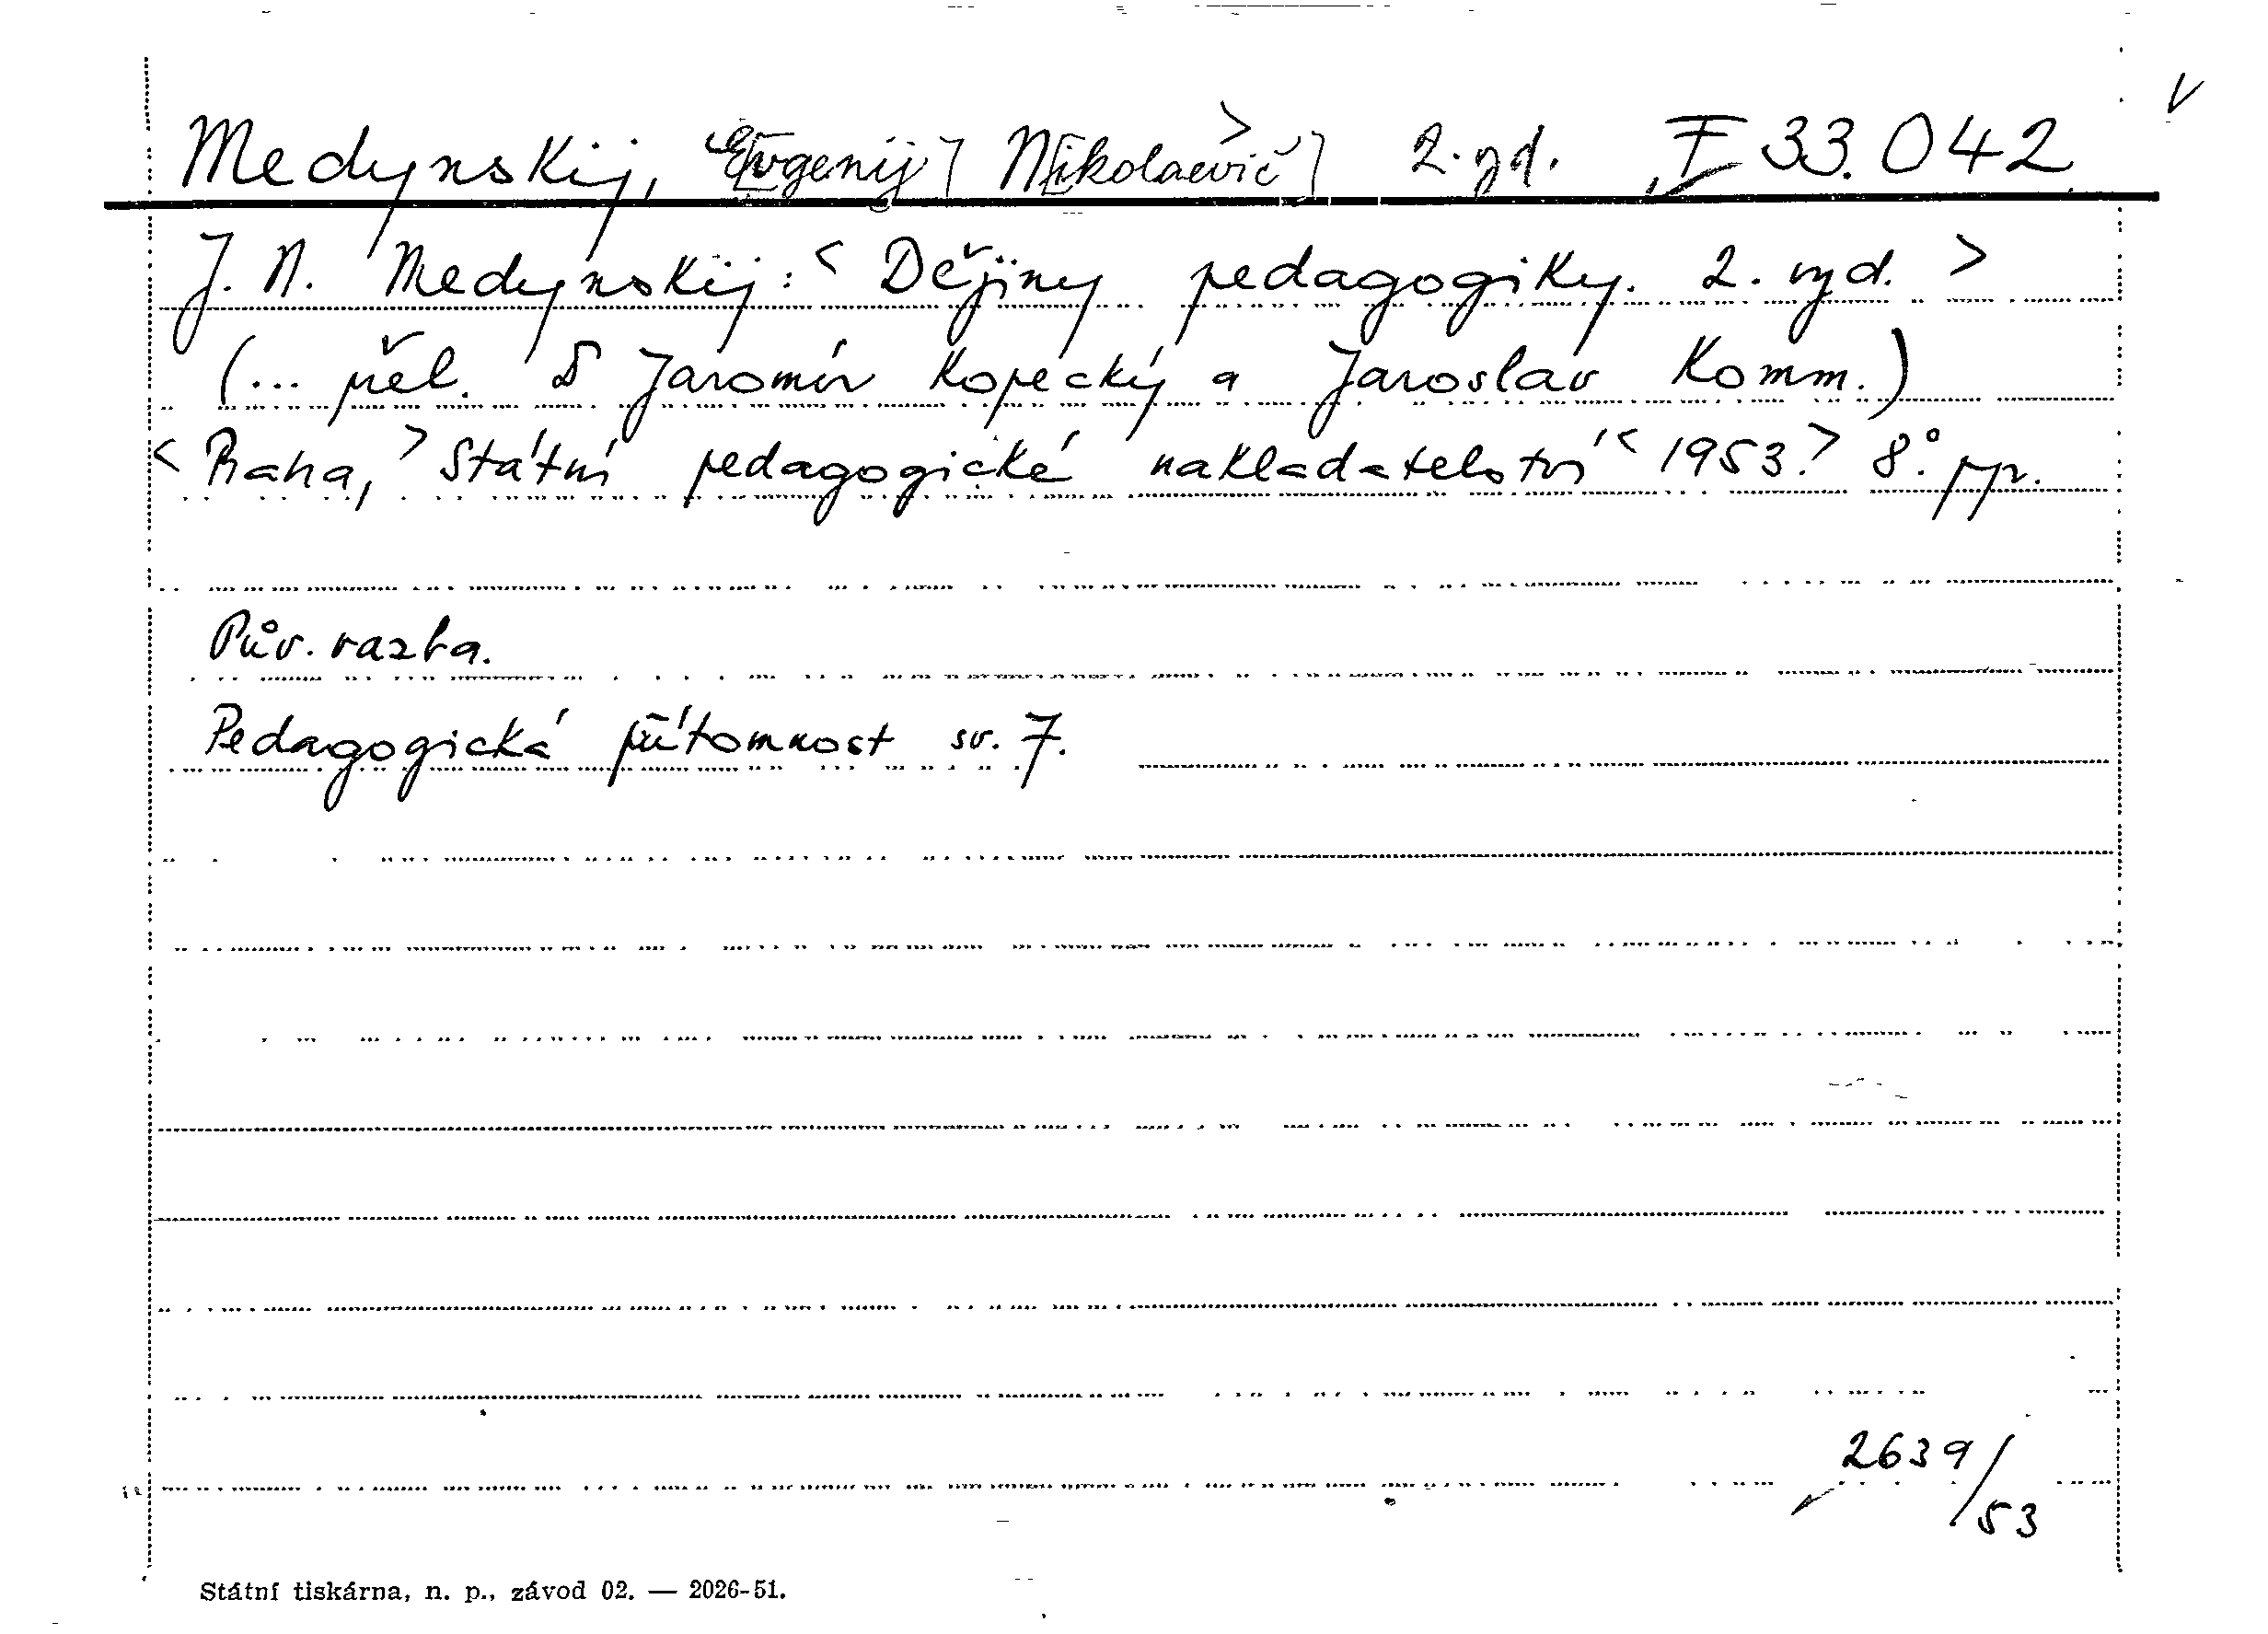 Medynskij, <E[vgenij] N[ikolaevič]> 2. vyd. F 33.042
J. N. Medynskij: < Dějiny pedagogiky. 2. vyd. >
(... přel. Jaromír Kopecký a Jaroslav Komm.)
< Praha, > Státní pedagogické nakladatelství < 1953. > 8° ppr.
Pův. vazba.
Pedagogická přítomnost sv. 7.
2639/53
Státní tiskárna, n. p., závod 02. — 2026-51.